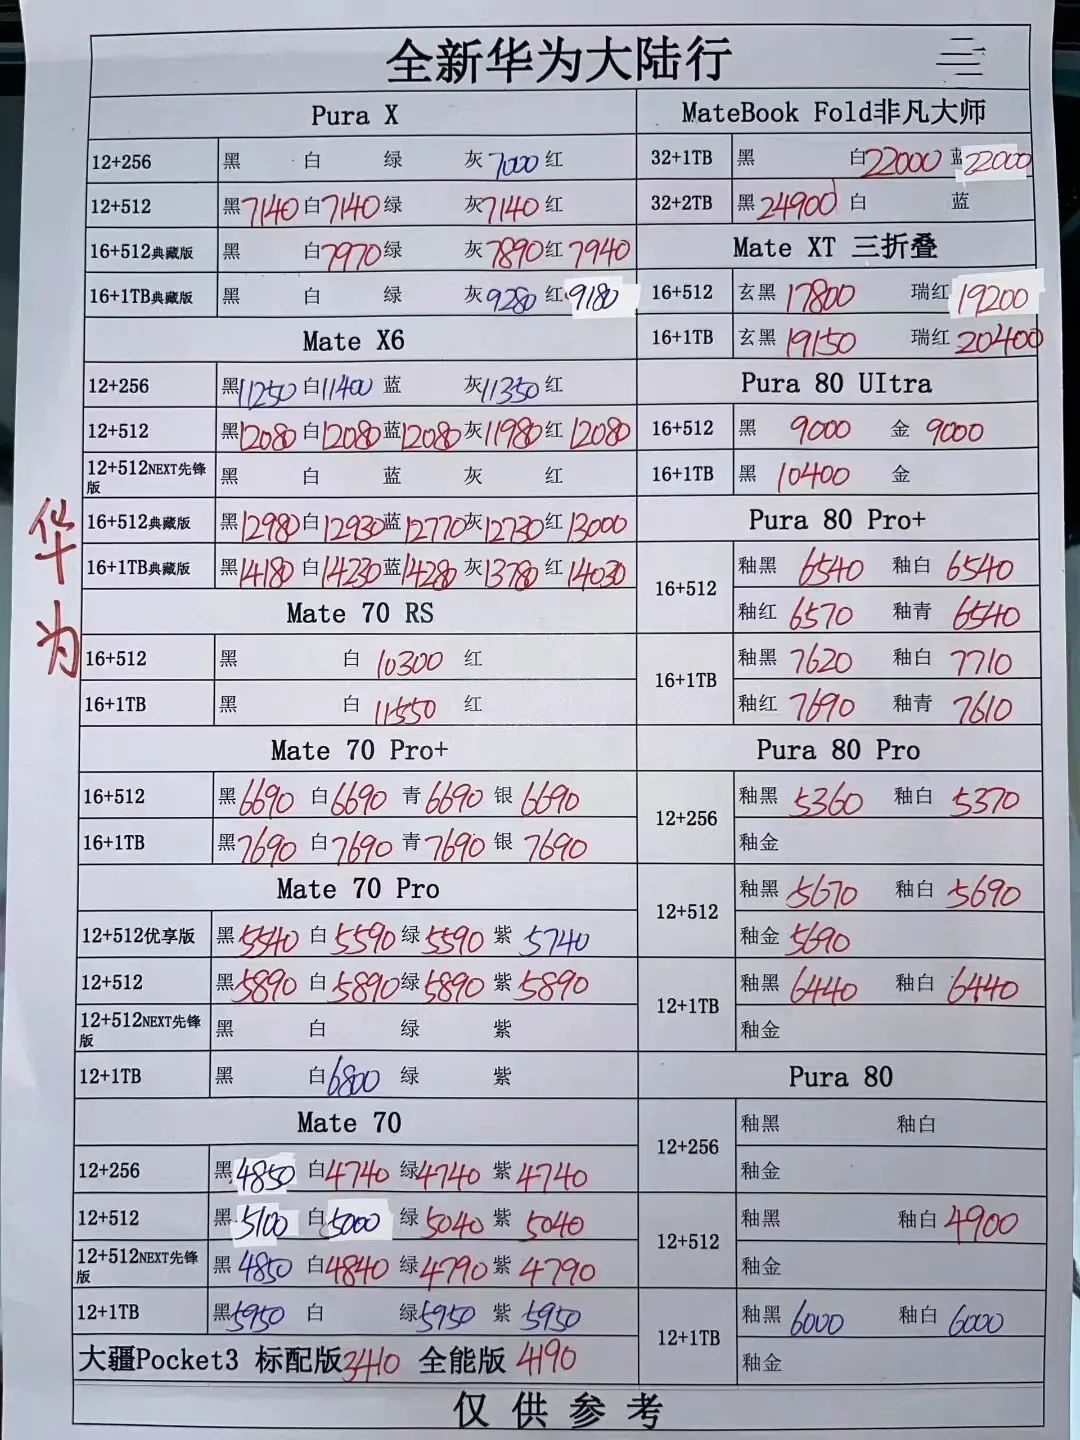 全新华为大陆行
Pura X
12+256 黑 白 绿 灰7000 红
12+512 黑7140 白7140 绿 灰7140 红
16+512典藏版 黑 白7970 绿 灰7890 红7940
16+1TB典藏版 黑 白 绿 灰9280 红9180
Mate X6
12+256 黑11250 白11400 蓝 灰11350 红
12+512 黑12080 白12080 蓝12080 灰11980 红12080
12+512NEXT先锋版 黑 白 蓝 灰 红
16+512典藏版 黑12980 白12930 蓝12770 灰12730 红13000
16+1TB典藏版 黑14180 白14230 蓝14280 灰13780 红14030
华为
Mate 70 RS
16+512 黑 白 10300 红
16+1TB 黑 白 11550 红
Mate 70 Pro+
16+512 黑6690 白6690 青6690 银6690
16+1TB 黑7690 白7690 青7690 银7690
Mate 70 Pro
12+512优享版 黑5540 白5590 绿5590 紫5740
12+512 黑5890 白5890 绿5890 紫5890
12+512NEXT先锋版 黑 白 绿 紫
12+1TB 黑 白6800 绿 紫
Mate 70
12+256 黑4850 白4740 绿4740 紫4740
12+512 黑5100 白5000 绿5040 紫5040
12+512NEXT先锋版 黑4850 白4840 绿4790 紫4790
12+1TB 黑5950 白 绿5950 紫5950
大疆Pocket3 标配版3410 全能版4190
MateBook Fold非凡大师
32+1TB 黑 白22000 蓝22000
32+2TB 黑24900 白 蓝
Mate XT 三折叠
16+512 玄黑17800 瑞红19200
16+1TB 玄黑19150 瑞红20400
Pura 80 UItra
16+512 黑 9000 金 9000
16+1TB 黑 10400 金
Pura 80 Pro+
16+512 釉黑 6540 釉白 6540
釉红 6570 釉青 6540
16+1TB 釉黑 7620 釉白 7710
釉红 7690 釉青 7610
Pura 80 Pro
12+256 釉黑 5360 釉白 5370
釉金
12+512 釉黑 5670 釉白 5690
釉金 5690
12+1TB 釉黑 6440 釉白 6440
釉金
Pura 80
12+256 釉黑 釉白
釉金
12+512 釉黑 釉白 4900
釉金
12+1TB 釉黑 6000 釉白 6000
釉金
仅供参考